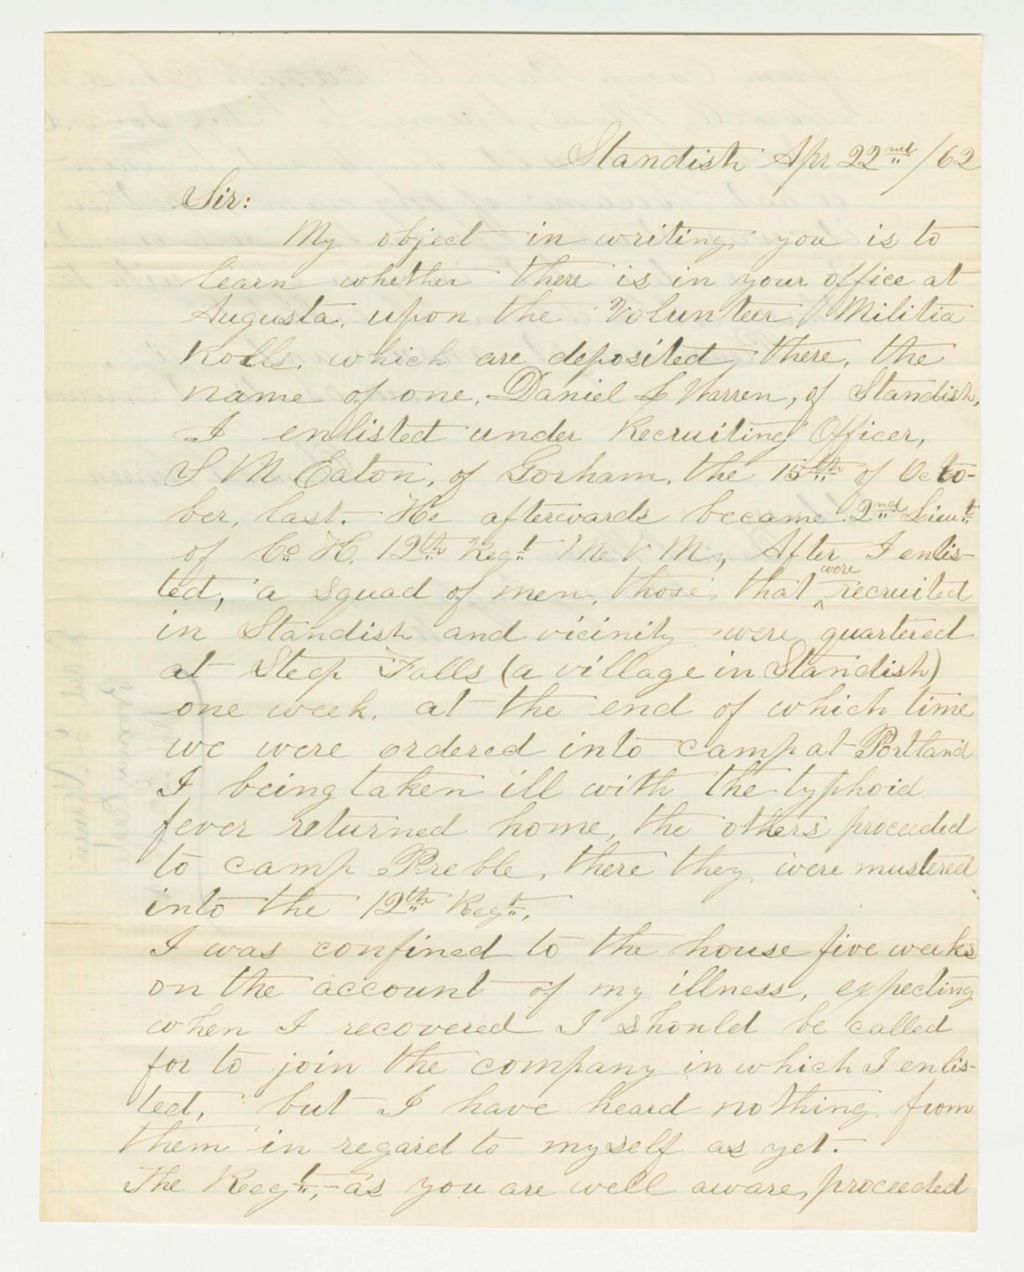 Standish Apr 22nd /62
Sir:
My object in writing you is to
learn whether there is in your office at
Augusta, upon the Volunteer Militia
Rolls, which are deposited there, the
name of one, Daniel L Warren, of Standish,
I enlisted under Recruiting Officer,
S M Eaton, of Gorham, the 15th of Octo-
ber, last. He afterwards became 2nd Lieut
of Co H, 12th Regt Me V M, After I enlis-
ted, a squad of men, those, that were recruited
in Standish and vicinity were quartered
at Steep Falls (a village in Standish)
one week, at the end of which time
we were ordered into camp at Portland
I being taken ill with the typhoid
fever returned home, the others proceeded
to camp Preble, there they were mustered
into the 12th Regt,
I was confined to the house five weeks
on the account of my illness, expecting
when I recovered I should be called
for to join the company in which I enlis-
ted, but I have heard nothing from
them in regard to myself as yet.
The Regt, as you are well aware, proceeded